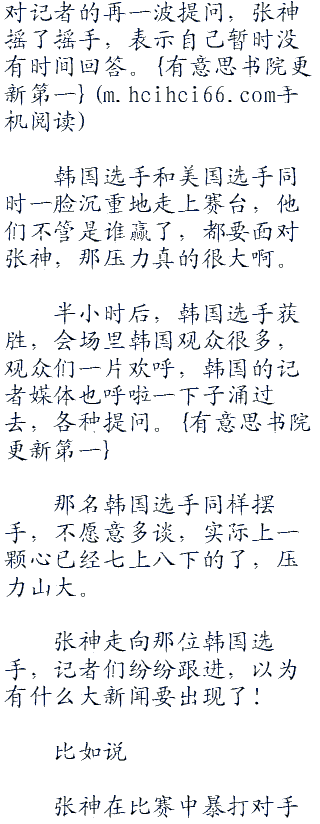 对记者的再一波提问，张神
摇了摇手，表示自己暂时没
有时间回答。{有意思书院更
新第一}(m.hcihci66.com手
机阅读)
韩国选手和美国选手同
时一脸沉重地走上赛台，他
们不管是谁赢了，都要面对
张神，那压力真的很大啊。
半小时后，韩国选手获
胜，会场里韩国观众很多，
观众们一片欢呼，韩国的记
者媒体也呼啦一下子涌过
去，各种提问。{有意思书院
更新第一}
那名韩国选手同样摆
手，不愿意多谈，实际上一
颗心已经七上八下的了，压
力山大。
张神走向那位韩国选
手，记者们纷纷跟进，以为
有什么大新闻要出现了！
比如说
张神在比赛中暴打对手